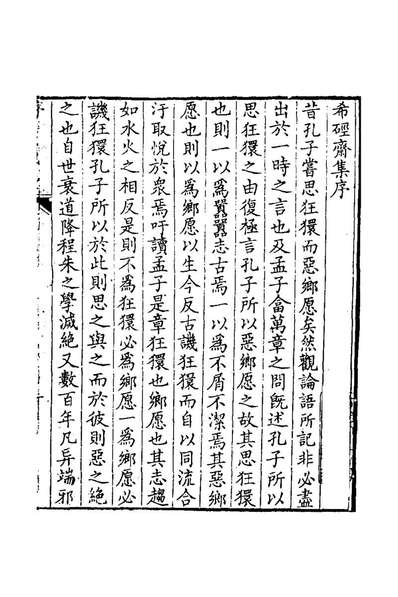 希硜齋集序
昔孔子嘗思狂獧而惡鄉愿矣然觀論語所記非必盡
出於一時之言也及孟子畣萬章之問旣述孔子所以
思狂獧之由復極言孔子所以惡鄉愿之故其思狂獧
也則一以爲嚚嚚志古焉一以爲不屑不潔焉其惡鄉
愿也則以爲鄉愿以生今反古譏狂獧而自以同流合
汙取悅於衆焉吁讀孟子是章狂獧也鄉愿也其志趨
如水火之相反是則不爲狂獧必爲鄉愿一爲鄉愿必
譏狂獧孔子所以於此則思之與之而於彼則惡之絶
之也自世衰道降程朱之學滅絶又數百年凡异端邪